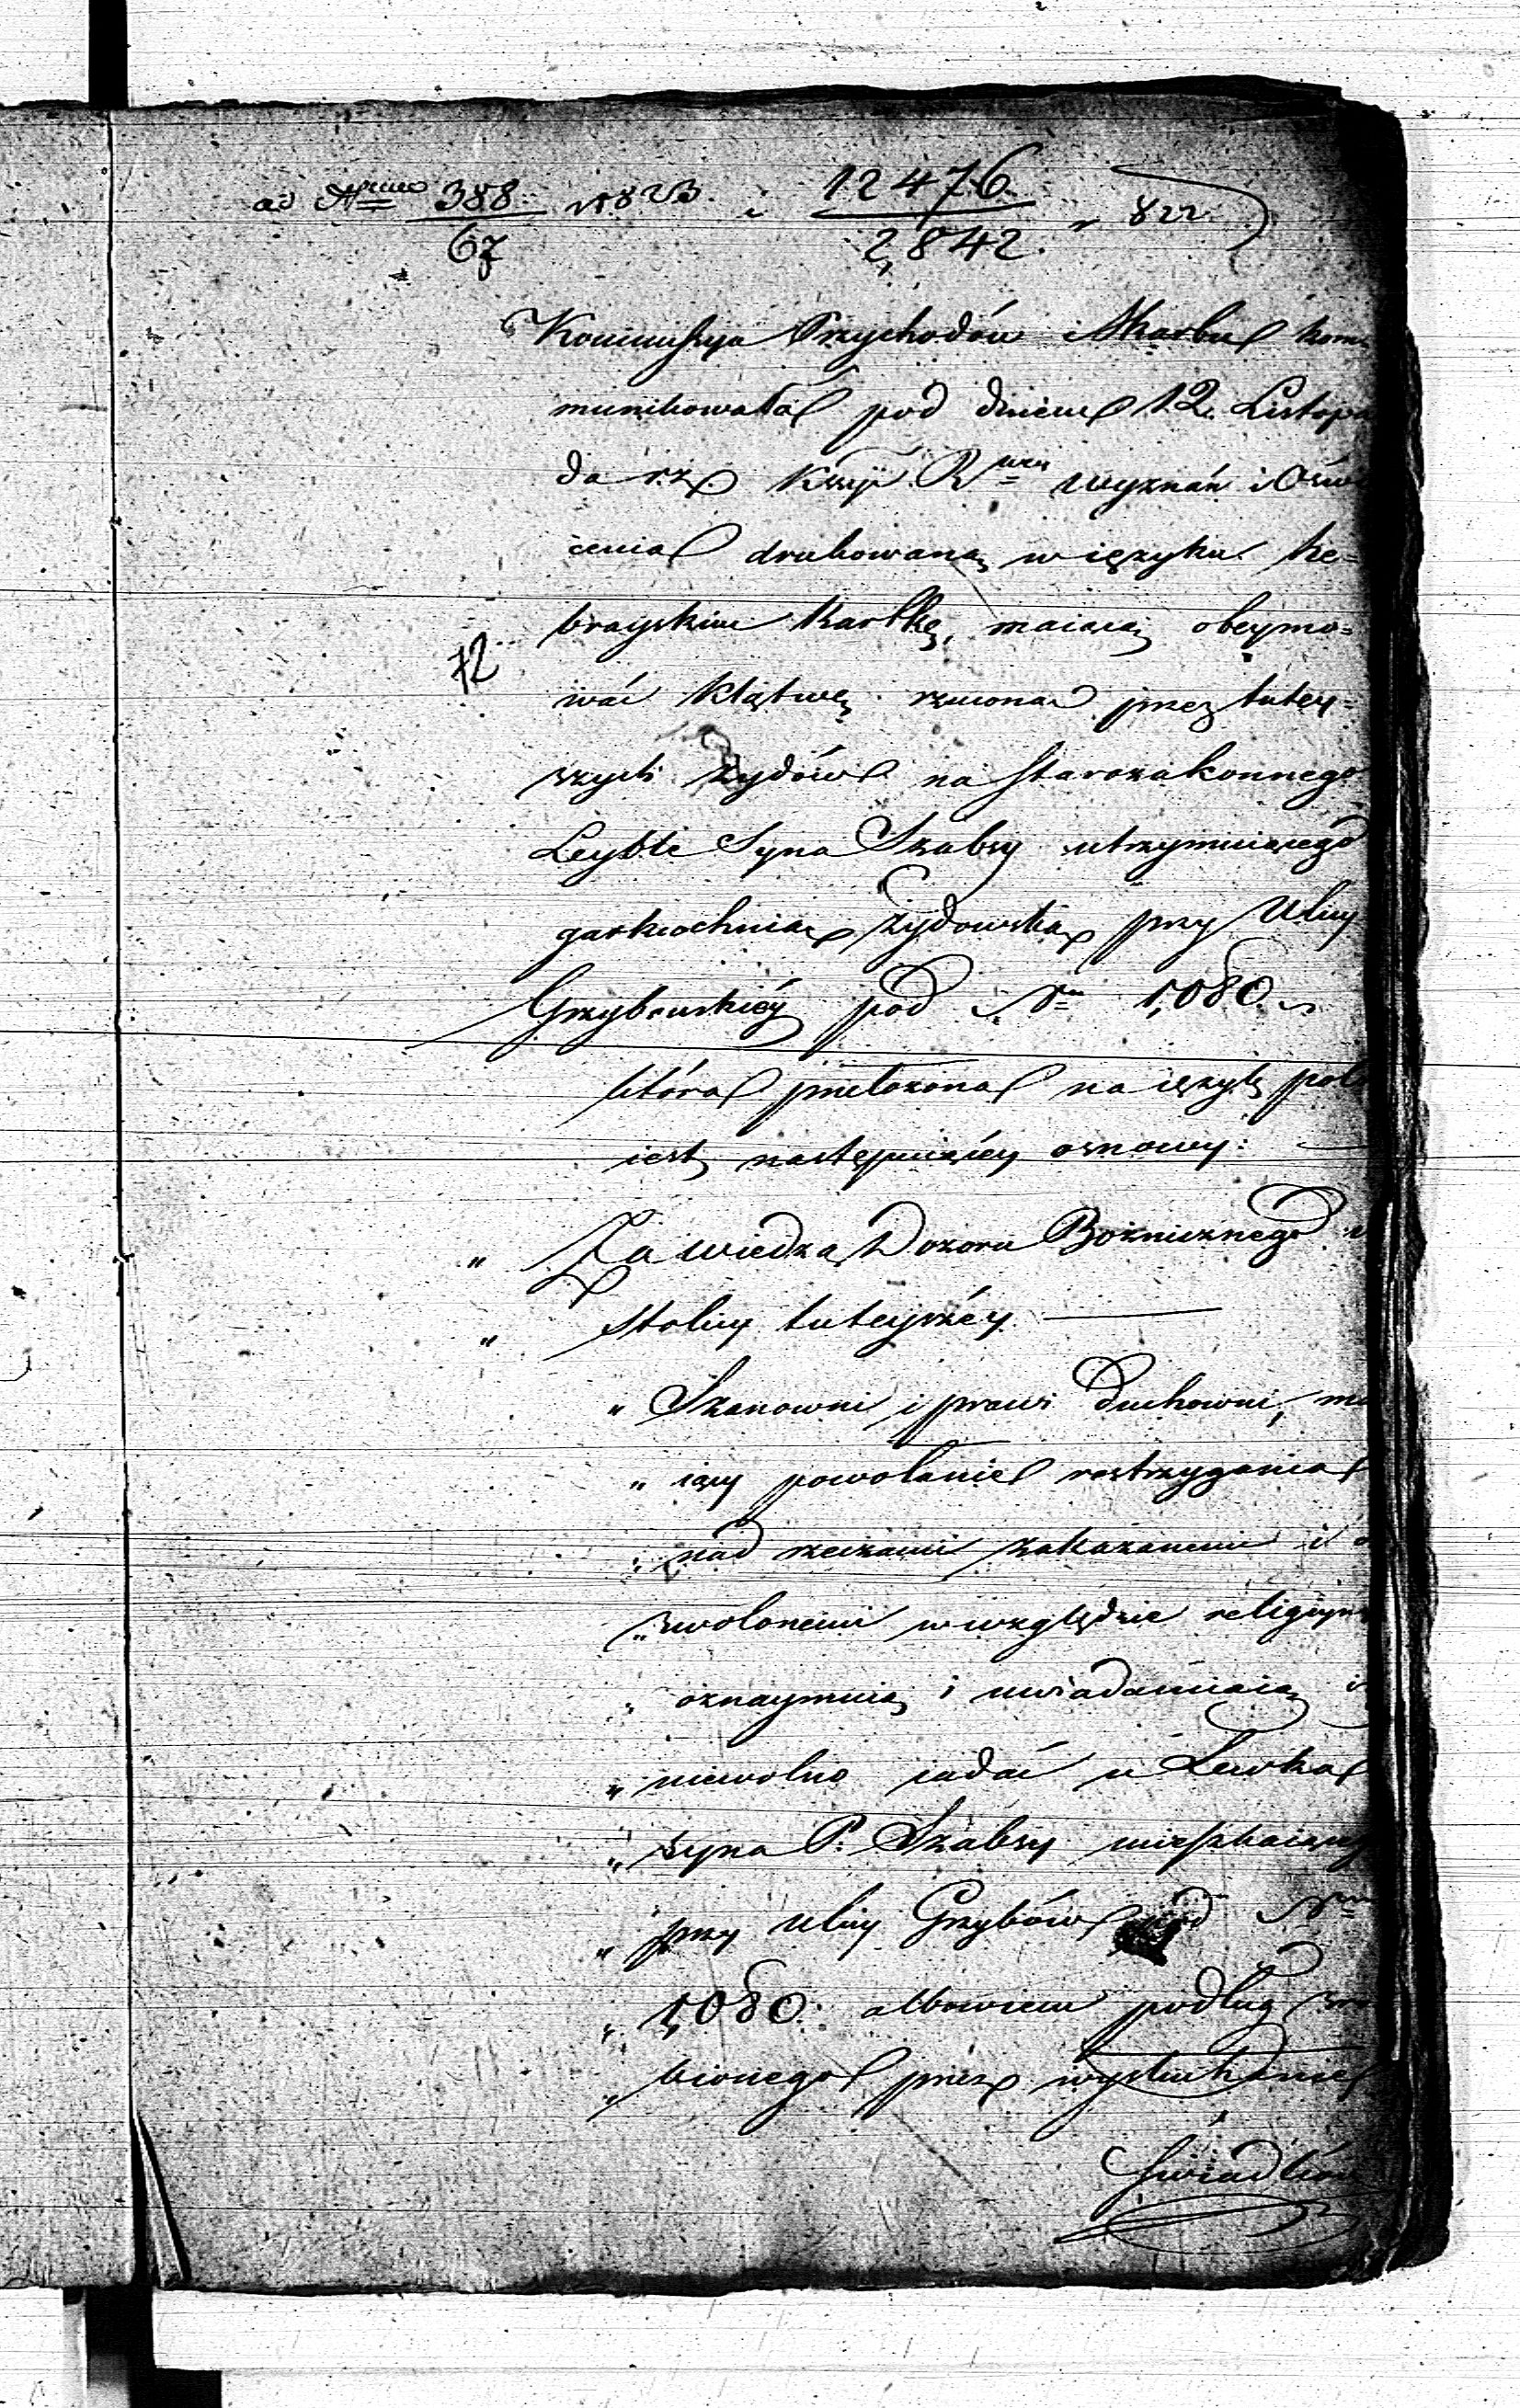 ad Nrum 388/67 1823. i 12476/2,842. r 822
Kommissya Przychodów i Skarbu kom=
munikowała pod dniem 12. Listopa
da r.z. Kssyi Rwey Wyznań i Oświ
cenia drukowaną w ięzyku he=
brayskim kartkę, maiącą obeymo=
72
wać klątwę rzuconą przez tutey=
szych żydów na starozakonnego
Leybke Syna Szabsy utrzymuiącego
garkuchnią żydowską przy Ulicy
Grzybowskiéy pod Nrm 1,080.
która przełożona na ięzyk pols
iest następuiącéy osnowy:
" Za wiedzą Dozoru Bożnicznego w
" stolicy tuteyszéy.
" Szanowni i prawi Duchowni, ma
" iący powołanie rostrzygania
" nad rzeczami zakazanemi i do
" zwolonemi w względzie religiyny
" oznaymuią i uwiadamiaią iż
" niewolno iadać u Lewka
" syna P. Szabsy mieszkaiąceg
" przy Ulicy Grzybów pod Nrm
" 1,080. albowiem podług zro
" bionego przez wysłuchanie
Swiadków